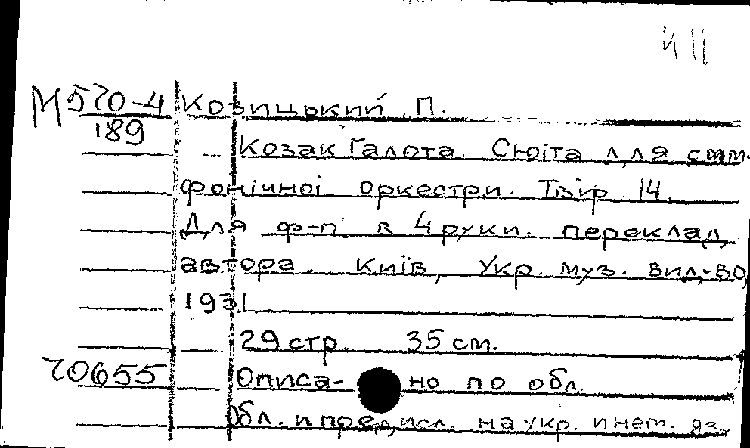 М570-4 Козицький П.
189
Козак Галота. Сюіта для сим-
фонічної оркестри. Твір 14.
Для ф-п в 4 руки. переклад
автора. Київ, Укр. муз. вид-во,
1931
29 стр 35 см.
70655 Описа- но по обл.
Обл. и предисл. на укр. и нем. яз.